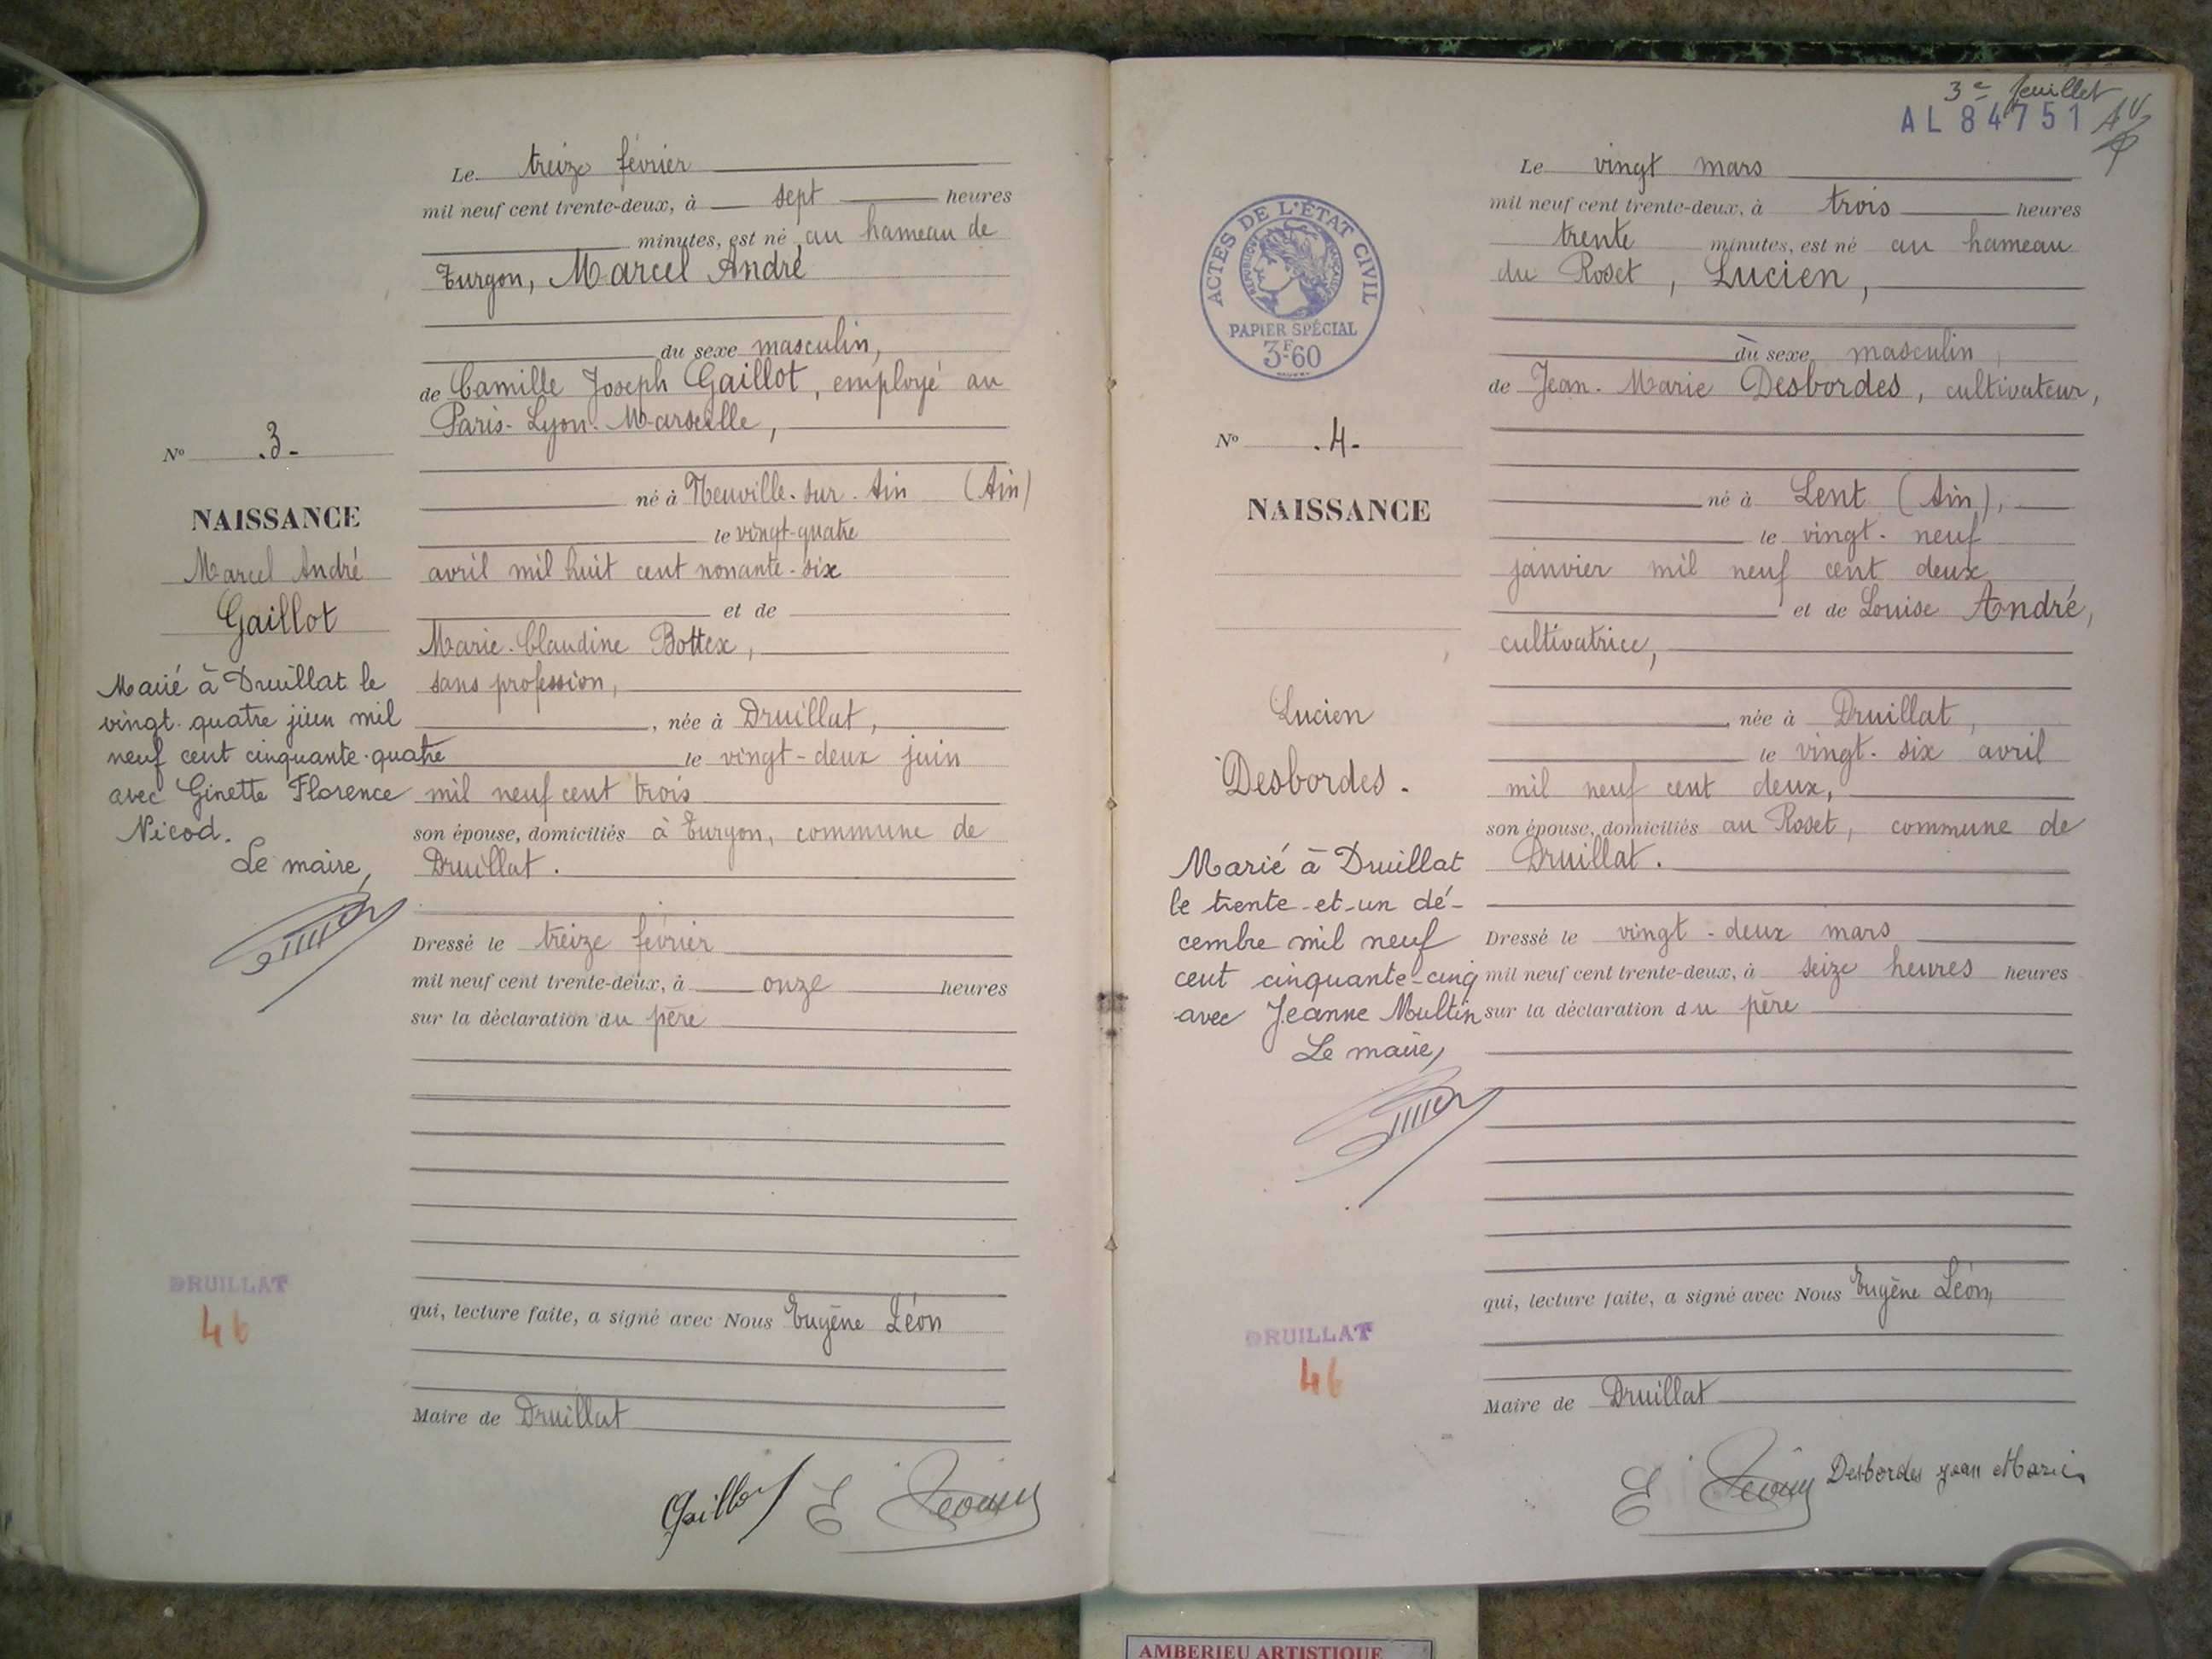 Le treize février
mil neuf cent trente-deux, à sept heures
minutes, est né au hameau de
Turgon, Marcel André
du sexe masculin,
de Camille Joseph Gaillot, employé au
Paris-Lyon-Marseille,
né à Neuville-sur-Ain (Ain)
le vingt-quatre
avril mil huit cent nonante-six
et de
Marie-Claudine Bottex,
sans profession,
, née à Druillat,
le vingt-deux juin
mil neuf cent trois
son épouse, domiciliés à Turgon, commune de
Druillat.
Dressé le treize février
mil neuf cent trente-deux, à onze heures
sur la déclaration du père
qui, lecture faite, a signé avec Nous Eugène Léon
Maire de Druillat
Gaillot E Léon
No .3-
NAISSANCE
Marcel André
Gaillot
Marié à Druillat le
vingt-quatre juin mil
neuf cent cinquante-quatre
avec Ginette Florence
Nicod.
Le maire,
DRUILLAT
46
3e feuillet
AL 84751
ACTES DE L'ÉTAT CIVIL
RÉPUBLIQUE FRANÇAISE
PAPIER SPÉCIAL
3F60
Le vingt mars
mil neuf cent trente-deux, à trois heures
trente minutes, est né au hameau
du Roset, Lucien,
du sexe masculin,
de Jean-Marie Desbordes, cultivateur,
né à Lent (Ain),
le vingt-neuf
janvier mil neuf cent deux
et de Louise André,
cultivatrice,
, née à Druillat,
le vingt-six avril
mil neuf cent deux,
son épouse, domiciliés au Roset, commune de
Druillat.
Dressé le vingt-deux mars
mil neuf cent trente-deux, à seize heures heures
sur la déclaration du père
qui, lecture faite, a signé avec Nous Eugène Léon,
Maire de Druillat
E Léon Desbordes Jean Marie
No .4-
NAISSANCE
Lucien
Desbordes.
Marié à Druillat
le trente-et-un dé-
cembre mil neuf
cent cinquante-cinq
avec Jeanne Multin
Le maire,
DRUILLAT
46
AMBERIEU ARTISTIQUE